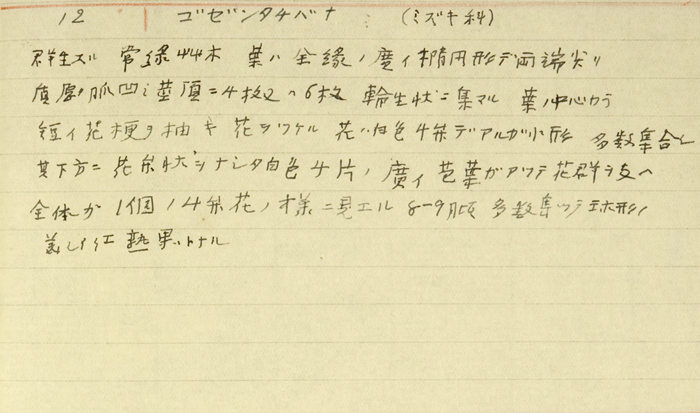 12 ゴゼンタチバナ (ミズキ科)
群生スル 常緑草本 葉ハ全縁ノ廣イ楕円形デ両端尖リ
質厚ク脈凹ミ茎頂ニ4枚又ハ6枚 輪生状ニ集マル 葉ノ中心カラ
短イ花梗ヲ抽キ 花ヲツケル 花ハ白色4弁デアルガ小形 多数集合シ
其下方ニ 花弁状ヲナシタ白色4片ノ廣イ苞葉ガアツテ花群ヲ支ヘ
全体が1個ノ4弁花ノ様ニ見エル 8-9月頃 多数集ツテ球形ノ
美シイ紅熟果トナル